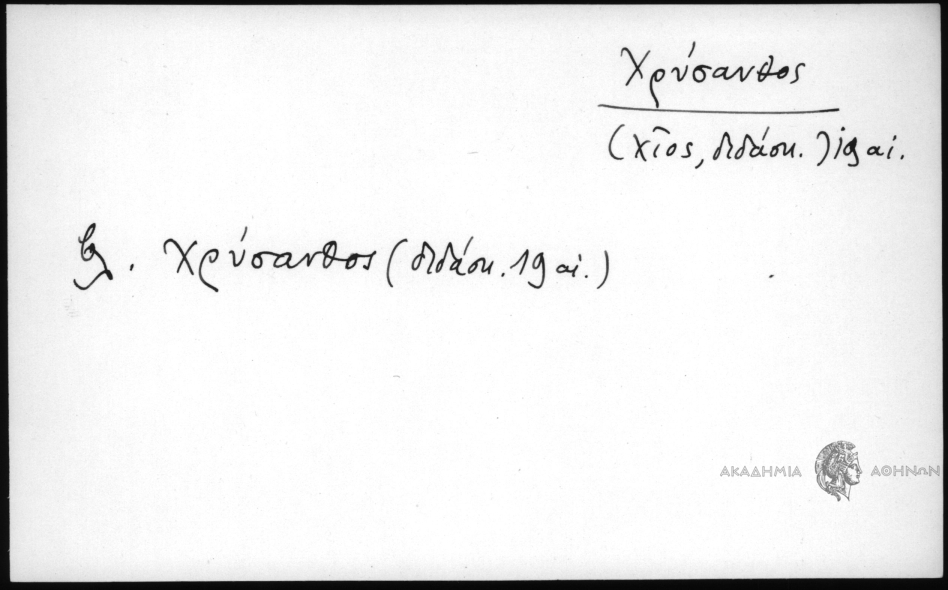 Χρύσανθος
(Χῖος, διδάσκ.) 19 αἰ.
βλ. Χρύσανθος (διδάσκ. 19 αἰ.)
ΑΚΑΔΗΜΙΑ ΑΘΗΝΩΝ